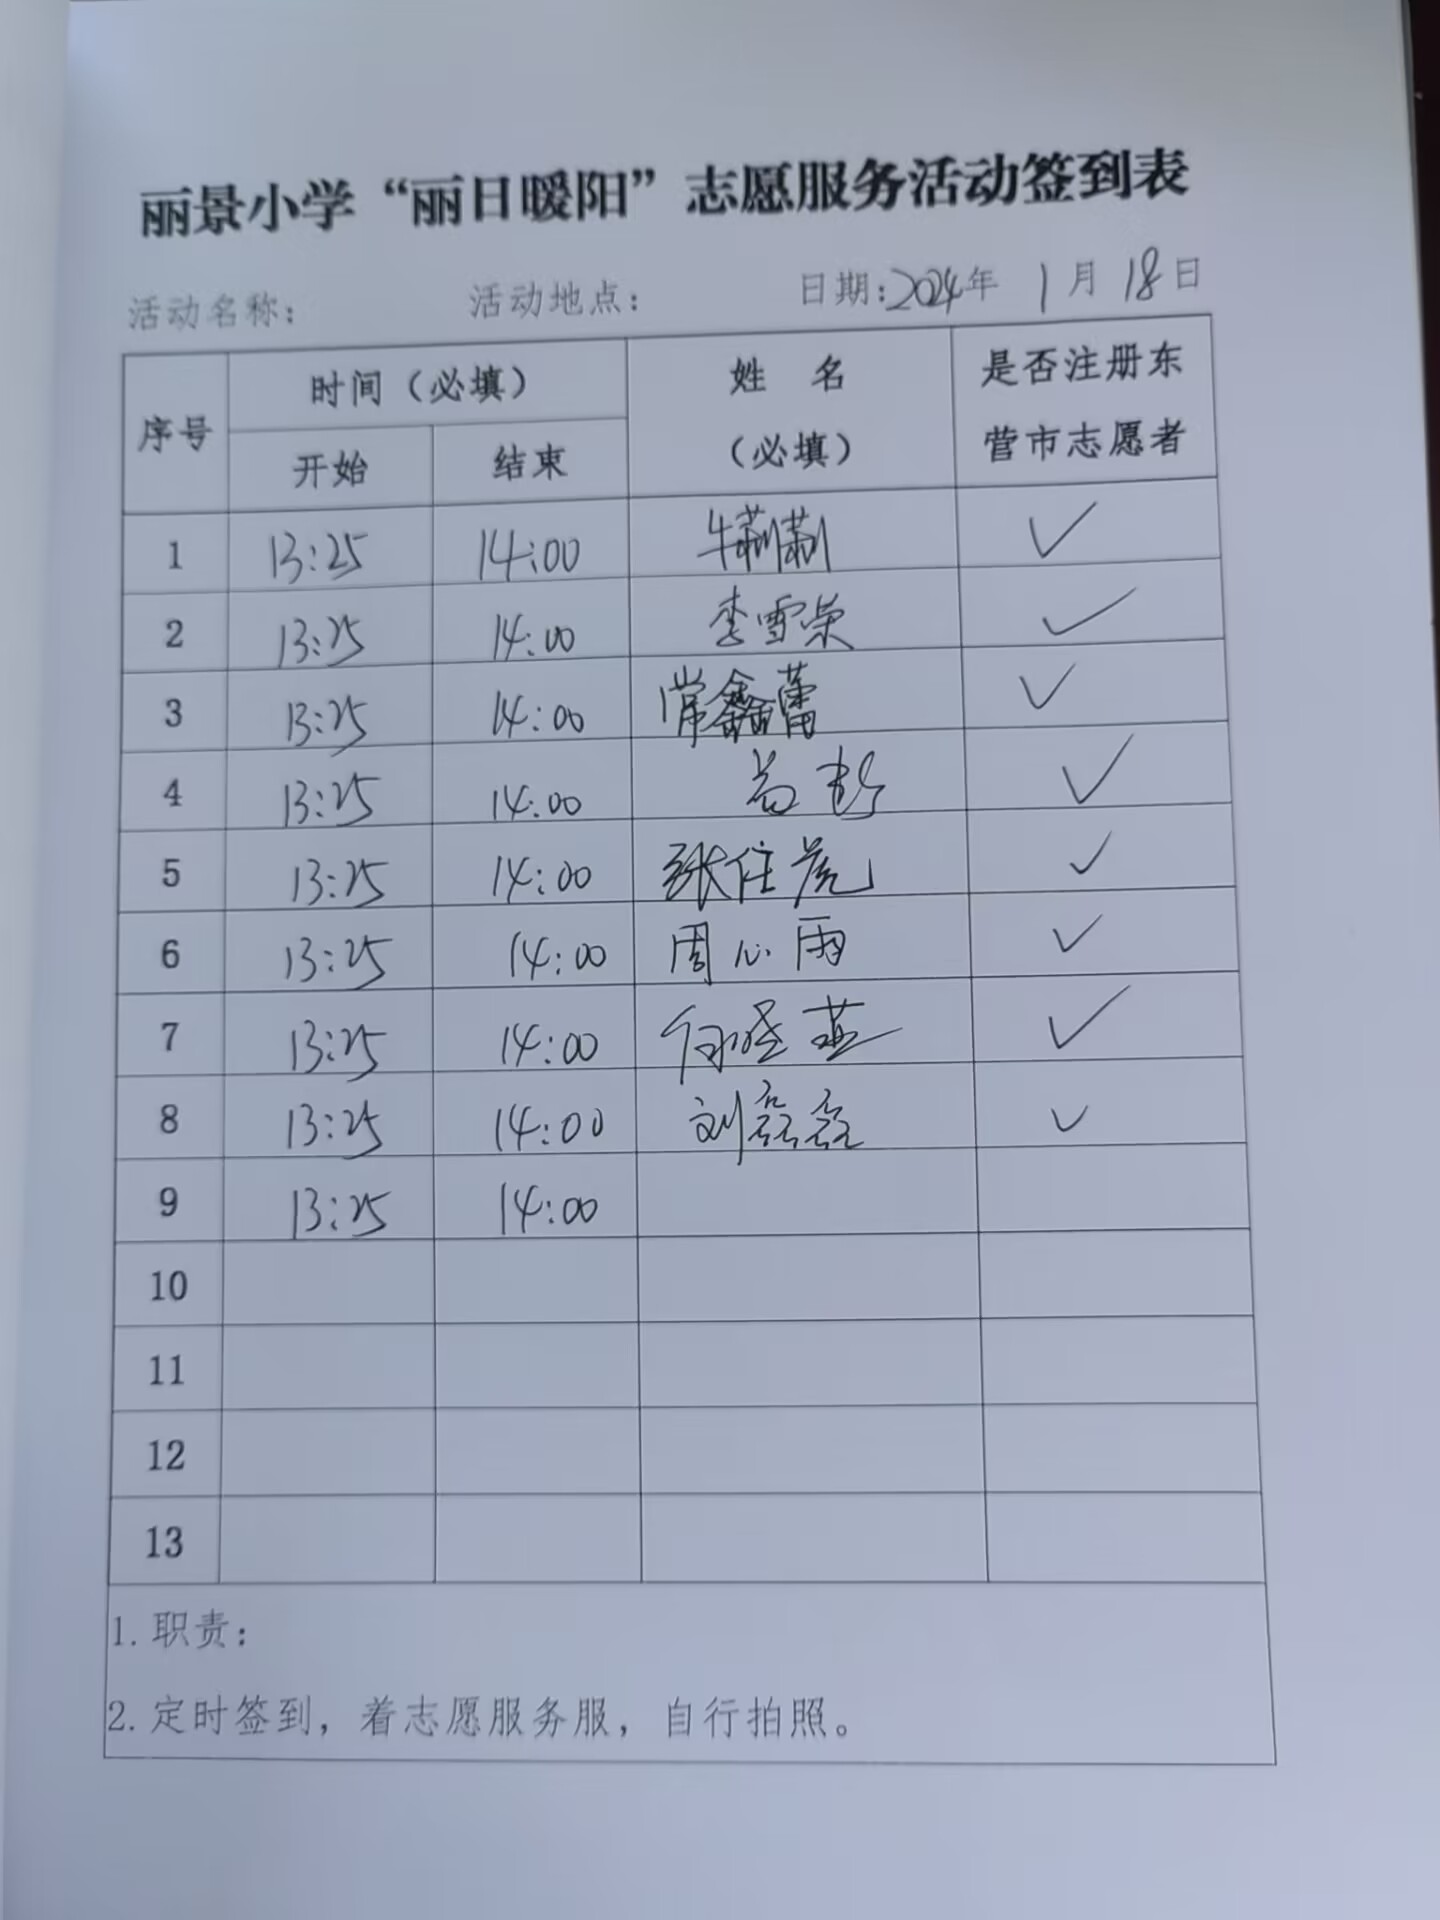 丽景小学“丽日暖阳”志愿服务活动签到表
活动名称： 活动地点： 日期:2024年 1月 18日
序号 时间（必填） 姓 名（必填） 是否注册东营市志愿者
开始 结束
1 13:25 14:00 ✓
2 13:25 14:00 李雪荣 ✓
3 13:25 14:00 常鑫蕾 ✓
4 13:25 14:00 ✓
5 13:25 14:00 ✓
6 13:25 14:00 周心雨 ✓
7 13:25 14:00 ✓
8 13:25 14:00 刘磊磊 ✓
9 13:25 14:00
10
11
12
13
1.职责：
2.定时签到，着志愿服务服，自行拍照。